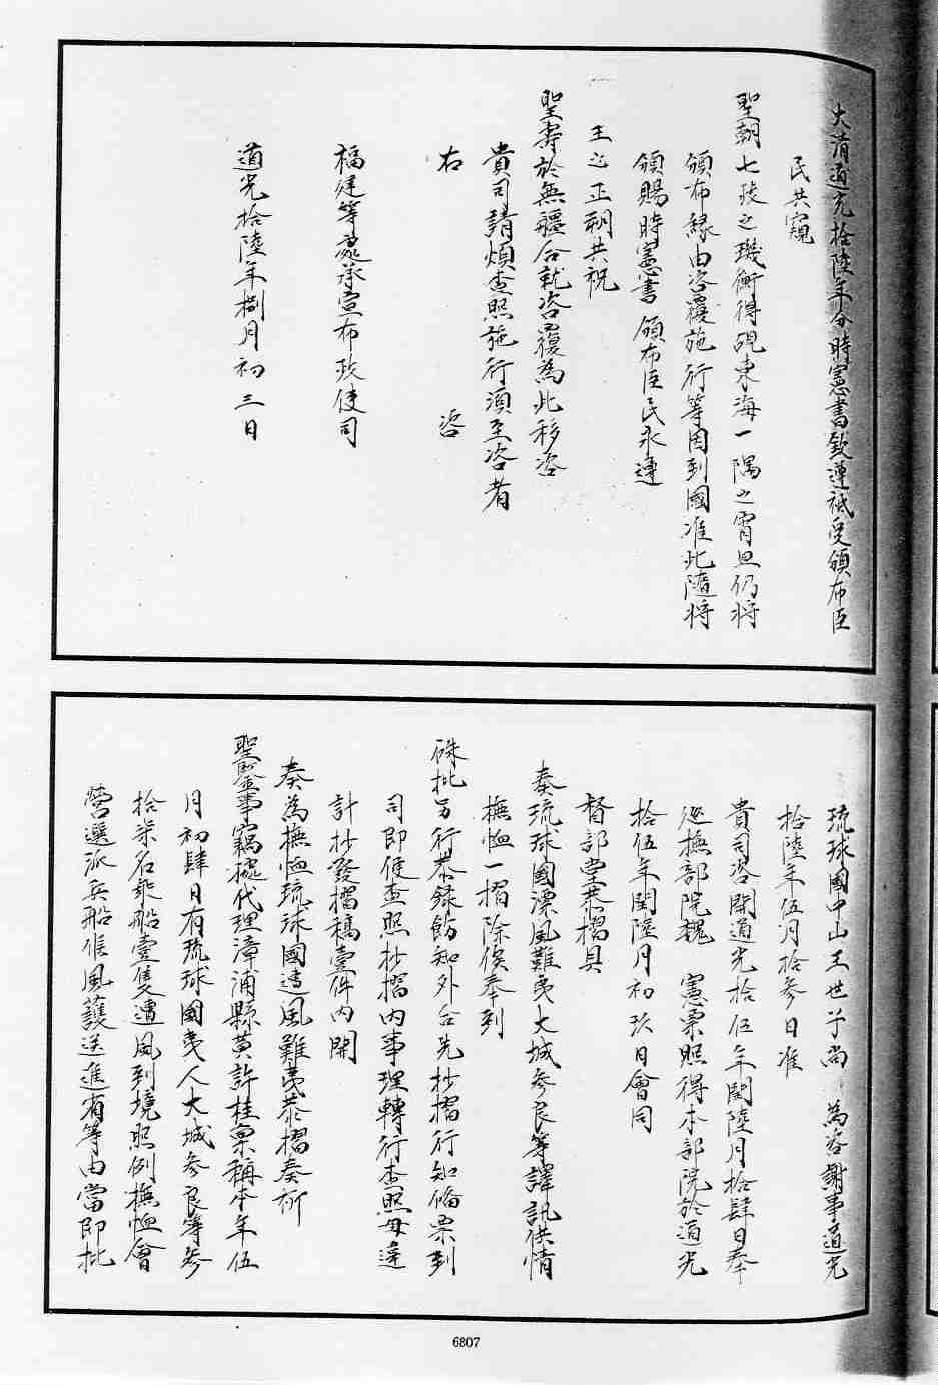 大清道光拾陸年分時憲書欽遵祗受頒布臣
民共窺
聖朝七政之璣衡得覩東海一隅之宵旦仍將
頒布緣由咨覆施行等因到國准此隨將
頒賜時憲書 頒布臣民永遵
王之正朔共祝
聖壽於無疆合就咨覆為此移咨
貴司請煩查照施行須至咨者
右 咨
福建等處承宣布政使司
道光拾陸年捌月初三日
琉球國中山王世子尚 為咨謝事道光
拾陸年伍月拾參日准
貴司咨開道光拾伍年閏陸月拾肆日奉
巡撫部院魏 憲票照得本部院於道光
拾伍年閏陸月初玖日會同
督部堂恭摺具
奏琉球國漂風難夷大城參良等譯訊供情
撫恤一摺除俟奉到
硃批另行恭錄飭知外合先抄摺行知備票到
司即便查照抄摺內事理轉行查照毋違
計抄發摺稿壹件內開
奏為撫恤琉球國遭風難夷恭摺奏祈
聖鑒事竊據代理漳浦縣黃許桂稟稱本年伍
月初肆日有琉球國夷人大城參良等參
拾柒名乘船壹隻遭風到境照例撫恤會
營選派兵船候風護送進省等由當即批
6807